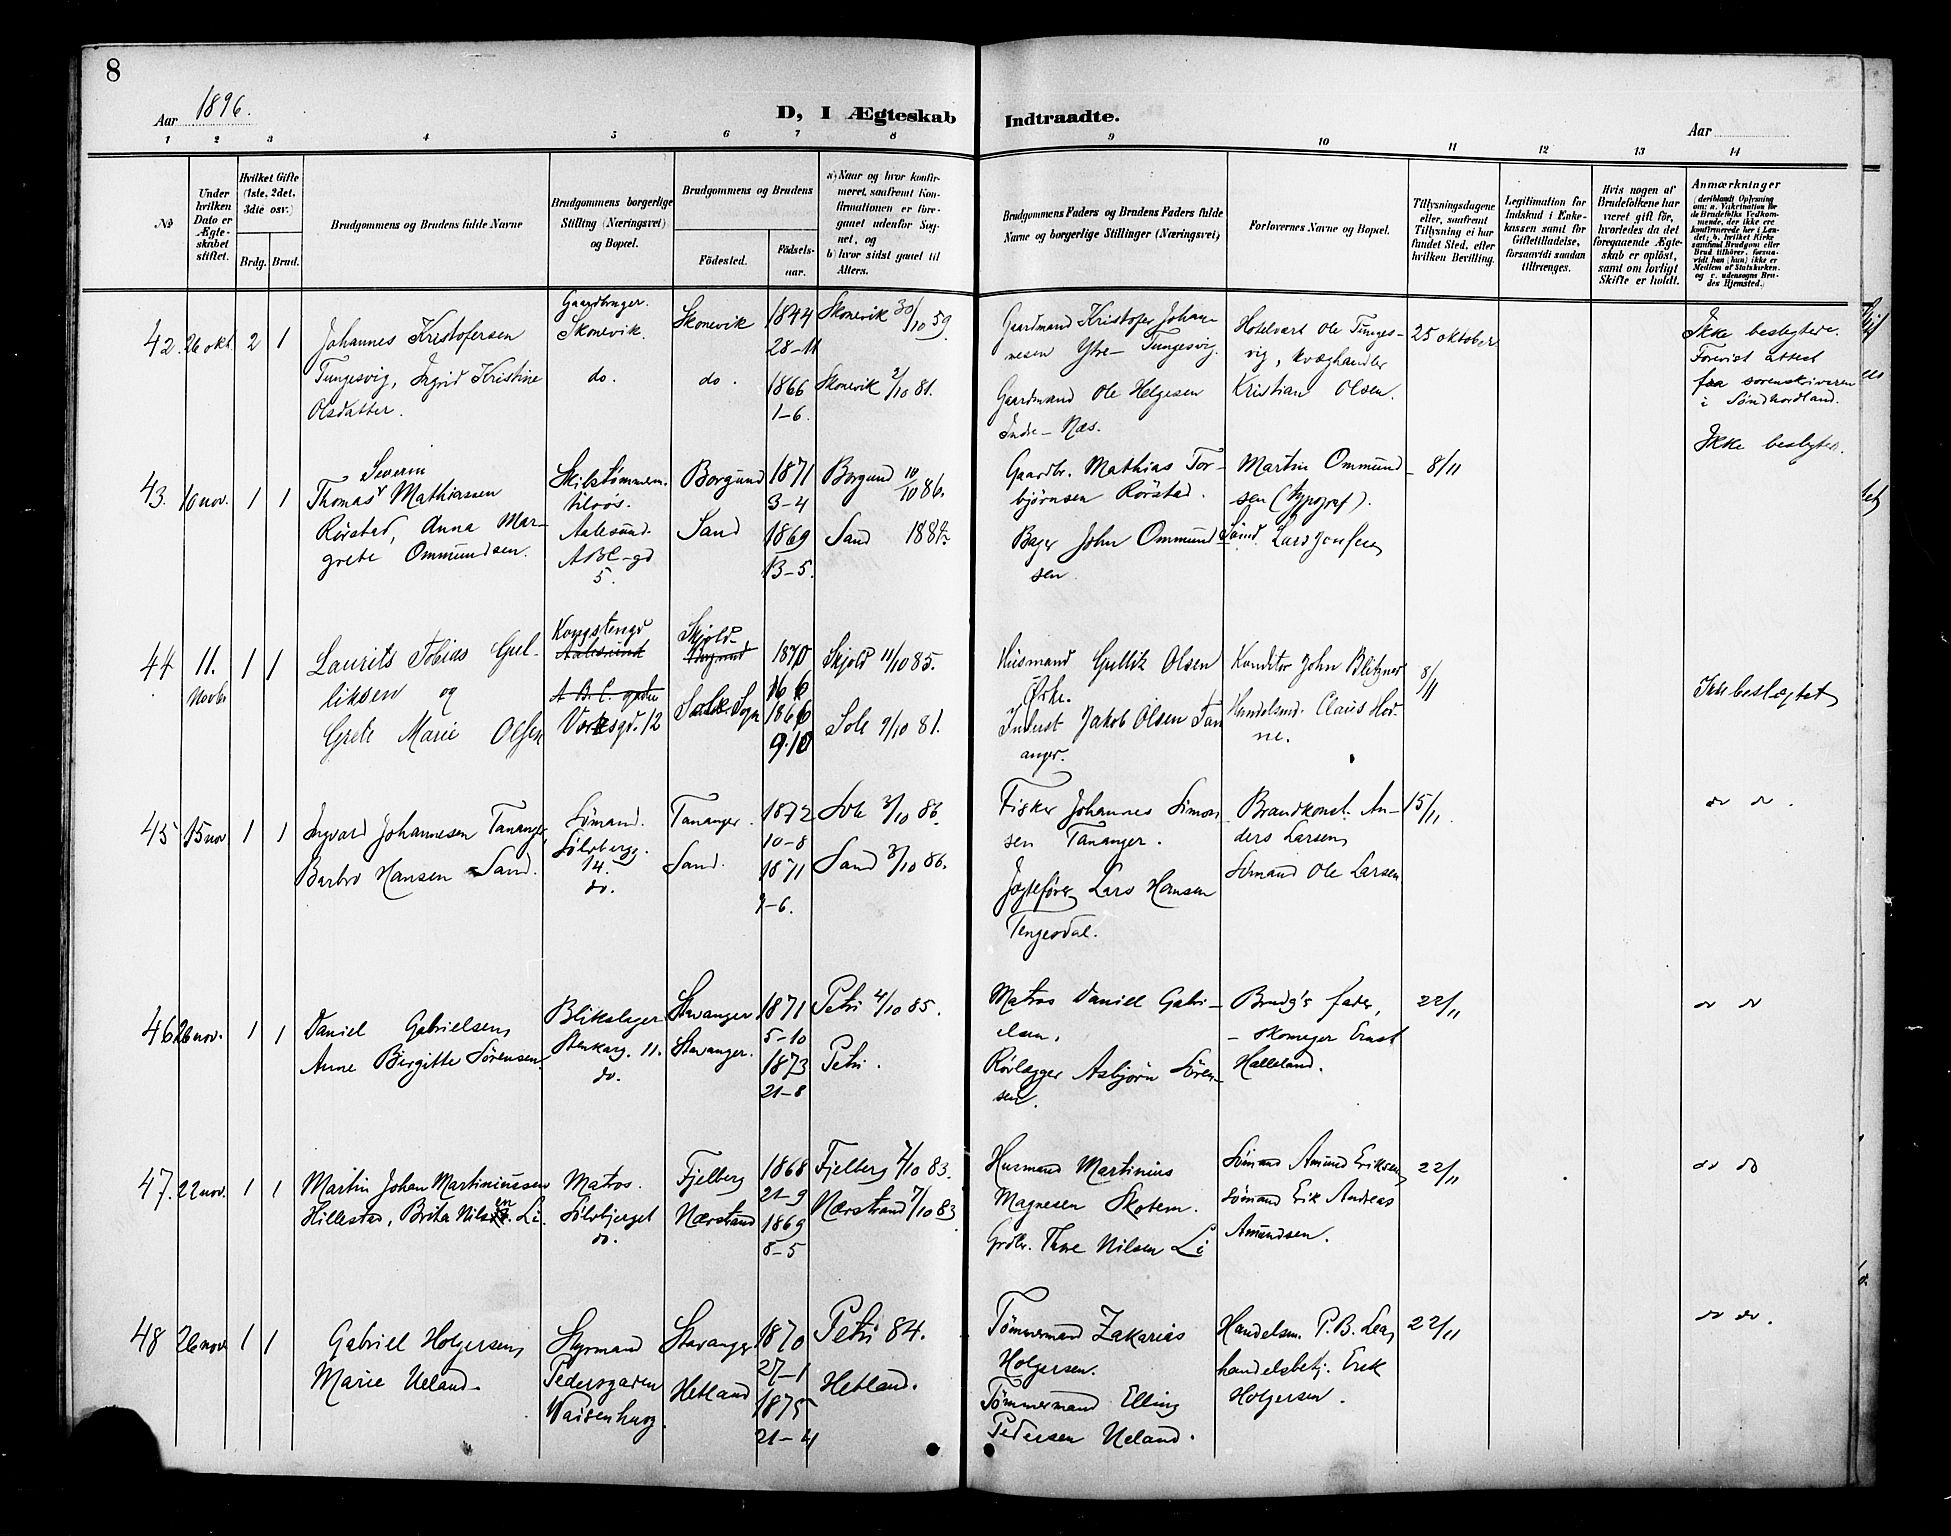 8
Aar 1896.
D, I Ægteskab Indtraadte.
Aar
1 2 3 4 5 6 7 8 9 10 11 12 13 14
No
Under hvilken Dato er Ægteskabet stiftet.
Hvilket Gifte (1ste, 2det, 3die osv.)
Brdg. Brud.
Brudgommens og Brudens fulde Navne
Brudgommens borgerlige Stilling (Næringsvei) og Bopæl.
Brudgommens og Brudens
Födested.
Födselsaar.
a) Naar og hvor konfirmeret, saafremt Konfirmationen er foregaaet udenfor Sognet, og
b) hvor sidst gaaet til Alters.
Brudgommens Faders og Brudens Faders fulde Navne og borgerlige Stillinger (Næringsvei)
Forlovernes Navne og Bopæl.
Tillysningsdagene eller, saafremt Tillysning ei har fundet Sted, efter hvilken Bevilling.
Legitimation for Indskud i Enkekassen samt for Giftetilladelse, forsaavidt saadan tiltrænges.
Hvis nogen af Brudefolkene har været gift før, hvorledes da det foregaaende Ægteskab er oplöst, samt om lovligt Skifte er holdt.
Anmærkninger
(deriblandt Oplysning om: a. Vakcination for de Brudefolks Vedkommende, der ikke ere konfirmerede her i Landet; b. hvilket Kirkesamfund Brudgom eller Brud tilhörer, forsaavidt han (hun) ikke er Medlem af Statskirken, og c. udensogns Brudes Hjemsted.)
42. 26 okt. 2 1
Johannes Kristofersen
Tungesvig, Ingrid Kristine
Olsdatter.
Gaardbruger.
Skonevik.
do.
Skonevik
do.
1844
28-11
1866
1-6.
Skonevik 30/10 59.
Skonevik 2/10 81.
Gaardmand Kristofer Johannesen Ytre- Tungesvig.
Gaardmand Ole Helgesen
Indre- Næs.
Hotelvært Ole Tungesvig, kvæghandler
Kristian Olsen.
25 oktober
Ikke beslegtede.
Forevist attest
fra sorenskriveren
i Søndhordland.
43. 10 nov. 1 1
Severin
Thomas Mathiassen
Rørstad, Anna Margrete Ommundsen.
Skibstømmem.
tilros.
Aalesund.
ABC-gd
5.
Borgund
Sand
1871
3-4
1869
13-5.
Borgund 10/10 86.
Sand 1884
Gaardbr. Mathias Torbjørnsen Rørstad.
Bager John Ommundsen
Martin Ommundsen (typograf).
Sømd. Lars Jonsen
8/11
Ikke beslegtet.
44 11. Novbr 1 1
Laurits Tobias Gulliksen og
Grete Marie Olsen
Kongstengd
Aalesund
A.B.C. gaden
Verksgd. 12
Skjold
Borgund
Sole Sogn
1870
16 6
1866
9.10
Skjold 11/10 85.
Sole 9/10 81.
Husmand Gullik Olsen
Ørke.
Inderst Jakob Olsen Tananger.
Konditor John Blitzner
Handelsmd. Claus Hodne.
8/11
Ikke beslegtet
45 15 nov 1 1
Ingvald Johannesen Tananger,
Barbro Hansen Sand.
Sømand.
Sølvbergg.
14.
do.
Tananger.
Sand.
1872
10-8
1871
9-6.
Sole 3/10 86.
Sand 3/10 86.
Fisker Johannes Simonsen Tananger.
Jægtefører Lars Hansen
Tengesdal.
Brandkonst. Anders Larsen
Sømand Ole Larsen
15/11.
do do.
46 26 nov. 1 1
Daniel Gabrielsen,
Anne Birgitte Sørensen.
Blikslager
Stenkarg. 11.
do.
Stavanger
Stavanger.
1871
5-10
1873
21-8
Petri 4/10 85.
Petri.
Matros Daniel Gabrielsen.
Rørlægger Asbjørn Sørensen.
Brudg's fader,
- skomager Ernst
Halleland.
22/11
do do
47. 22 nov. 1 1
Martin Johan Martiniussen
Hillestad, Brita Nilsen Li.
Matros.
Sølvbjerget
do.
Fjelberg
Nærstrand
1868
21-9
1869
8-5
Fjelberg 7/10 83.
Nærstrand 7/10 83.
Husmand Martinius
Magnesen Skotem.
Grdbr. Thore Nilsen Li
Sømand Amund Eriksen,
Sømand Erik Andreas
Amundsen.
22/11
do do
48 26 nov 1 1
Gabriel Holgersen,
Marie Ueland.
Styrmand
Pedersgaden
Waisenhusg.
Stavanger
Hetland
1870
27-1
1875
21-4
Petri 84.
Hetland.
Tømmermand Zakarias
Holgersen.
Tømmermand Elling
Pedersen Ueland.
Handelsm. P.B. Lea,
handelsbetj. Erik
Holgersen.
22/11
do do.